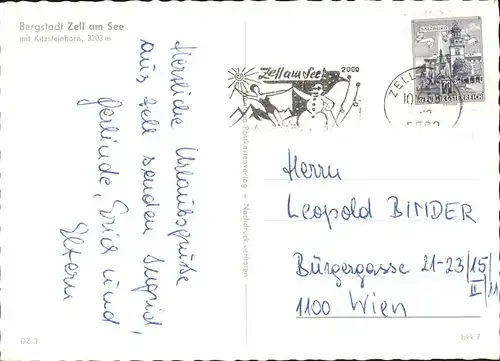 Bergstadt Zell am See
mit Kitzsteinhorn, 3203 m
Herzliche Urlaubsgrüße
aus Zell senden Ingrid,
Gerlinde, Erich und
Eltern
Zell am See
2000
SALZBURG
REPUBLIK ÖSTERREICH
ZELL
Postkartenverlag - Nachdruck verboten
Herrn
Leopold BINDER
Bürgergasse 21-23/15/
II/11
1100 Wien
DZ 3